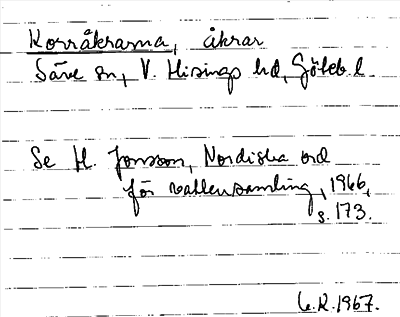 Korråkrarna, åkrar
Säve sn, V. Hisings hd, Göteb. l.
Se H. Jonsson, Nordiska ord
för vattensamling, 1966,
s. 173.
G.R. 1967.